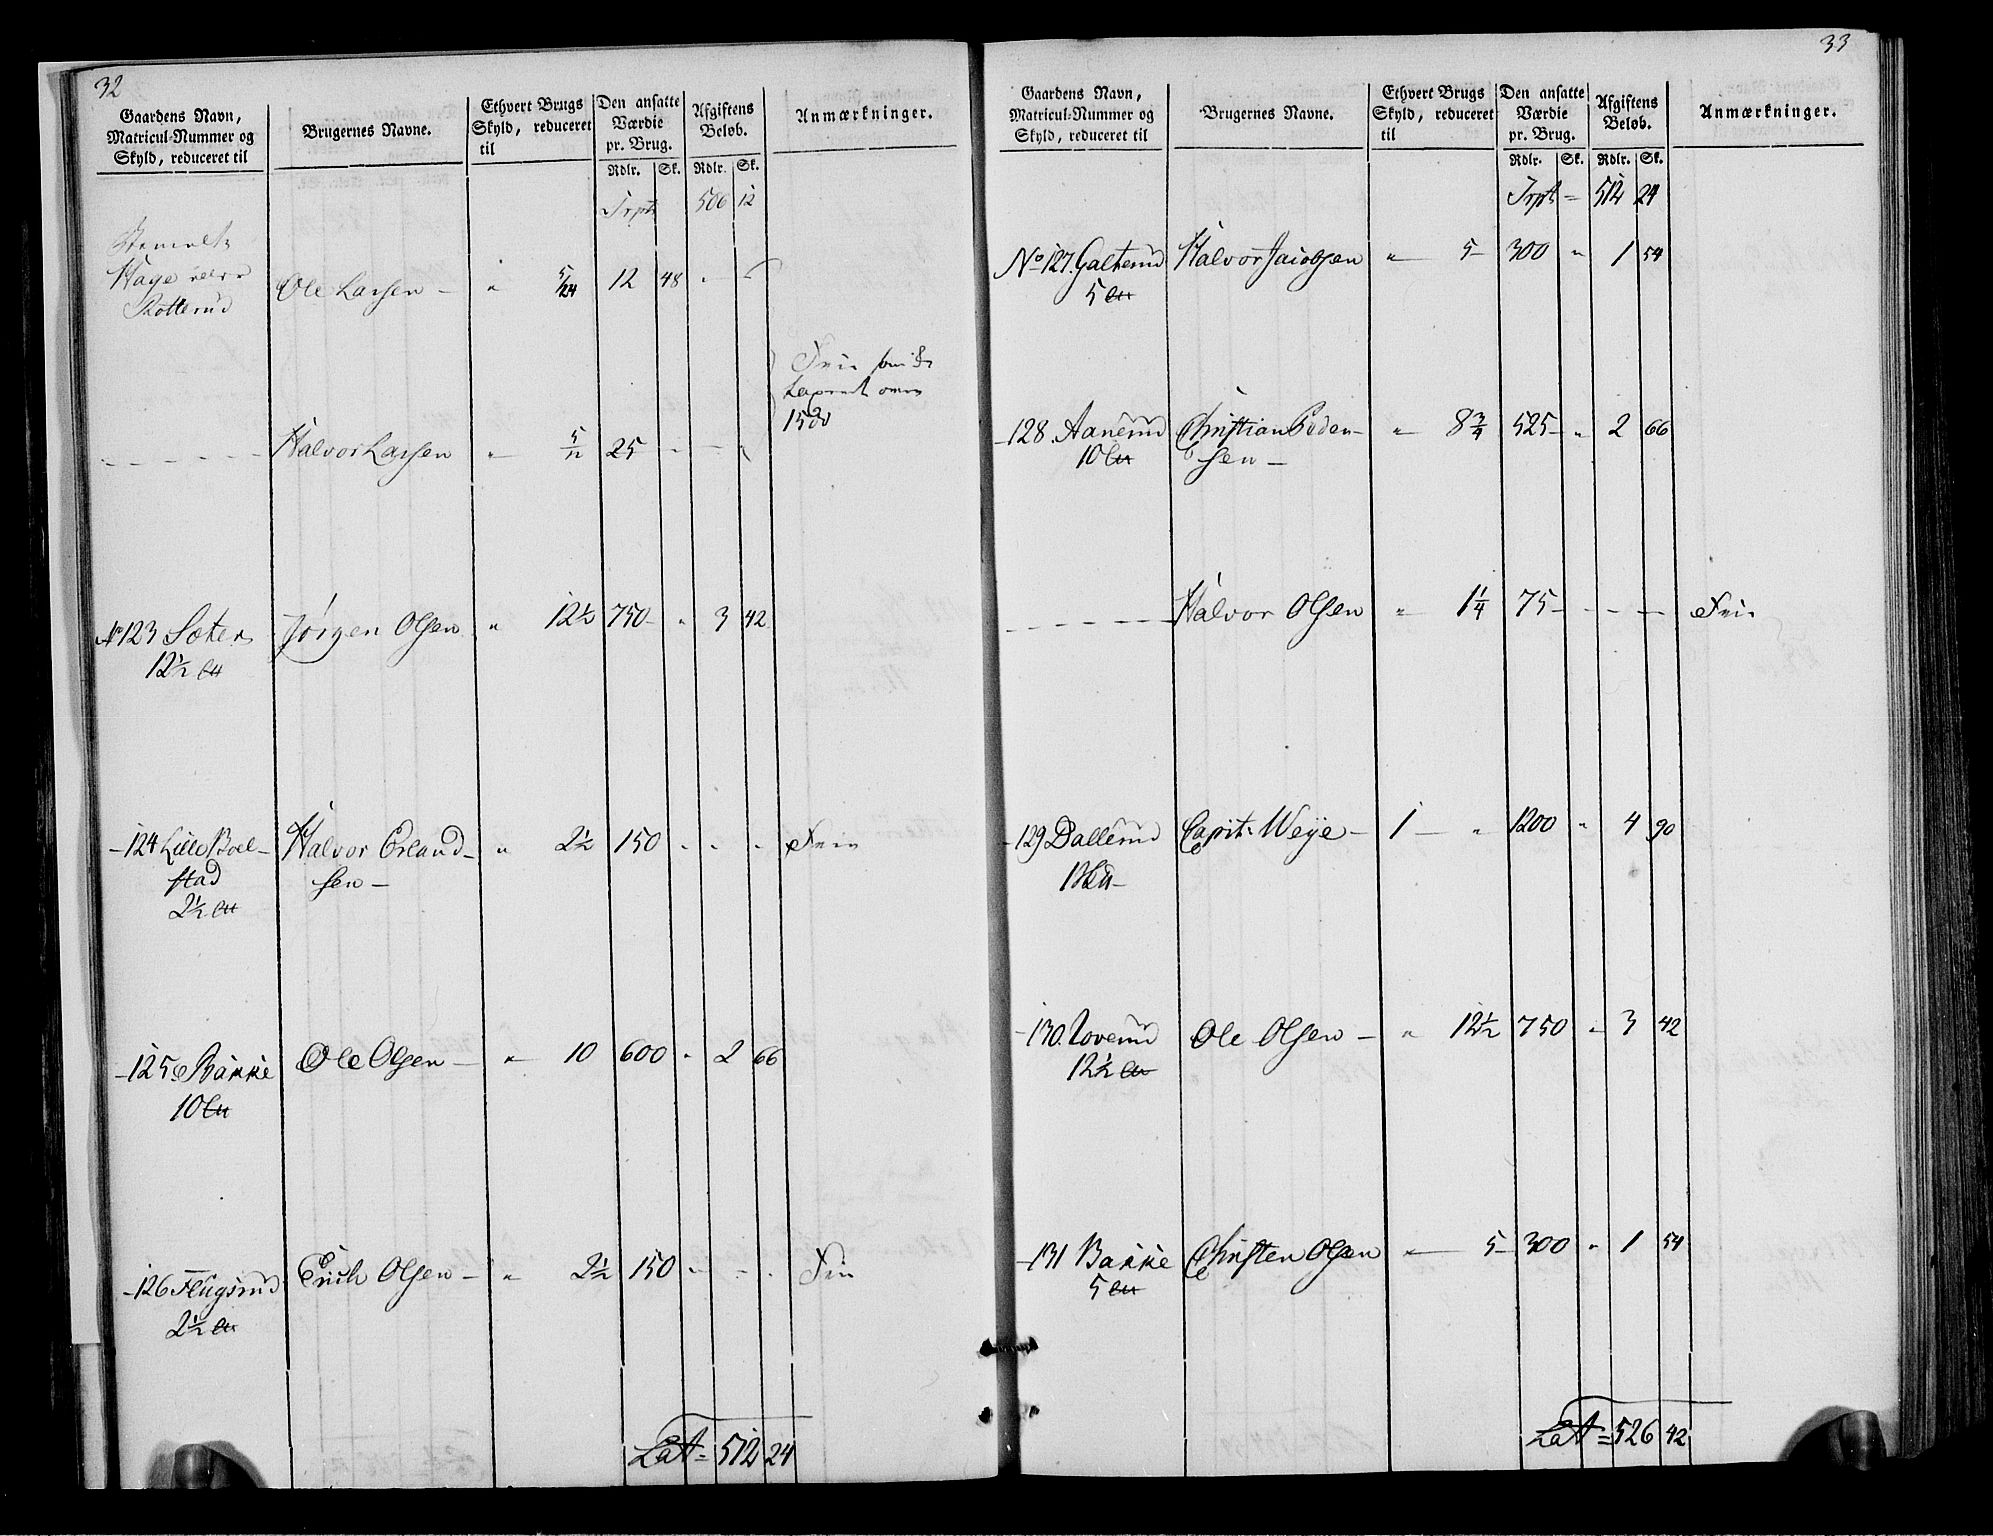 32
Gaardens Navn, Matricul-Nummer og Skyld, reduceret til
Brugernes Navne.
Ethvert Brugs Skyld, reduceret til
Den ansatte Værdie pr. Brug.
Afgiftens Beløb.
Anmærkninger.
Rdlr. Sk. Rdlr. Sk.
Trpt 506 12
Hage
Rotterud Ole Larsen - " 5/24 12 48 " "
Frie som
1500
- - - - - Halvor Larsen " 5/12 25 - - -
No 123 Sæter Jørgen Olsen " 12½ 750 - " 3 42
12½ Lu
- 124 Lille Boel- Halvor Erland- " 2½ 150 - - - Frie
stad sen -
2½ Lu
- 125 Bakke Ole Olsen - " 10 600 " 2 66
10 Lu
- 126 Flugsrud Erich Olsen - " 2½ 150 - - - Frie
2½ Lu
Lat = 512 24
33
Gaardens Navn, Matricul-Nummer og Skyld, reduceret til
Brugernes Navne.
Ethvert Brugs Skyld, reduceret til
Den ansatte Værdie pr. Brug.
Afgiftens Beløb.
Anmærkninger.
Rdlr. Sk. Rdlr. Sk.
Trpt = 512 24
No 127. Galterud Halvor Jacobsen " 5 - 300 " 1 54
5 Lu
- 128. Aanerud Christian Peder- " 8¾ 525 - " 2 66
10 Lu sen -
- - - - - Halvor Olsen " 1¼ 75 - - - - Frie
- 129 Dallerud Capit: Weye - 1 - " 1200 " 4 90
- 130. Toverud Ole Olsen - " 12½ 750 " 3 42
12½ Lu
- 131 Bakke Christen Olsen " 5 - 300 " 1 54
5 Lu
Lat = 526 42